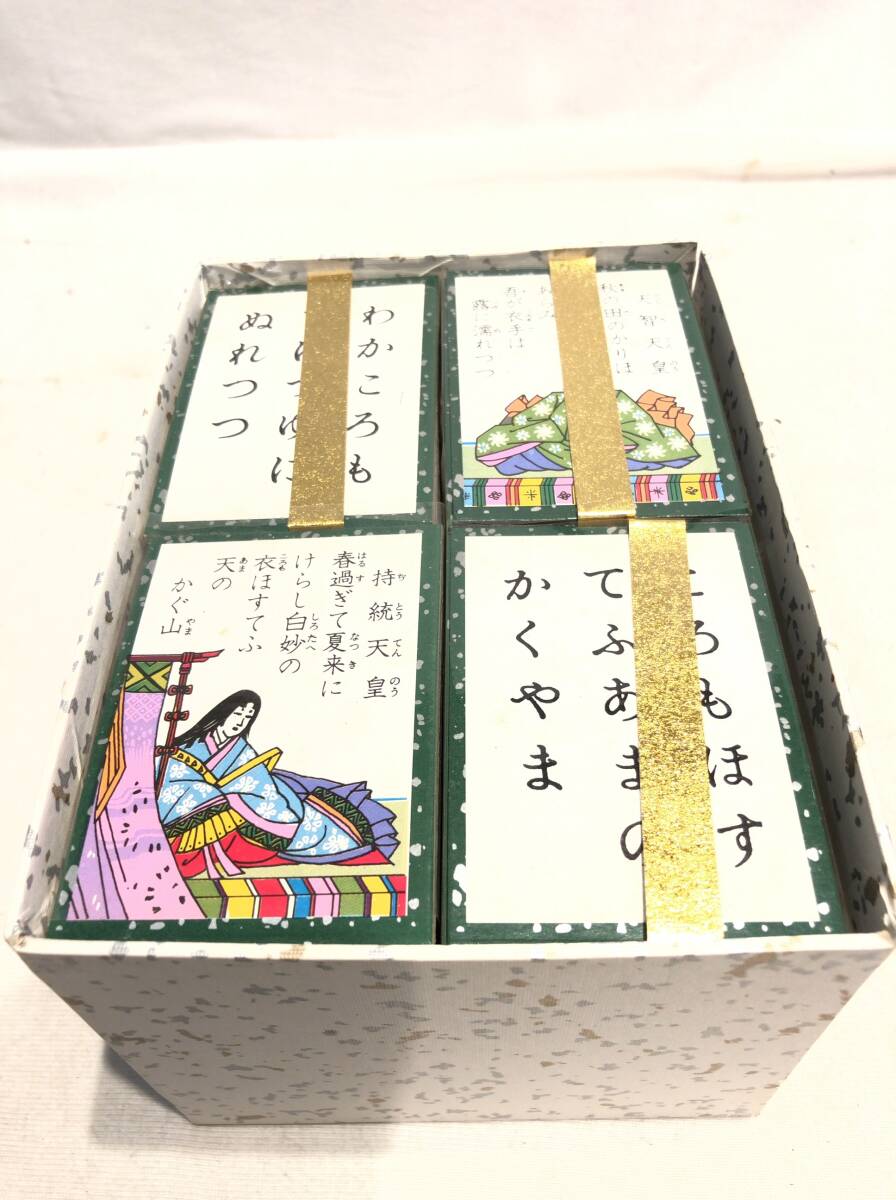 わかころも
はつゆに
ぬれつつ
天智天皇
秋の田のかりほ
吾が衣手は
露に濡れつつ
持統天皇
春過ぎて夏来に
けらし白妙の
衣ほすてふ
天の
かぐ山
ころもほす
てふあまの
かくやま